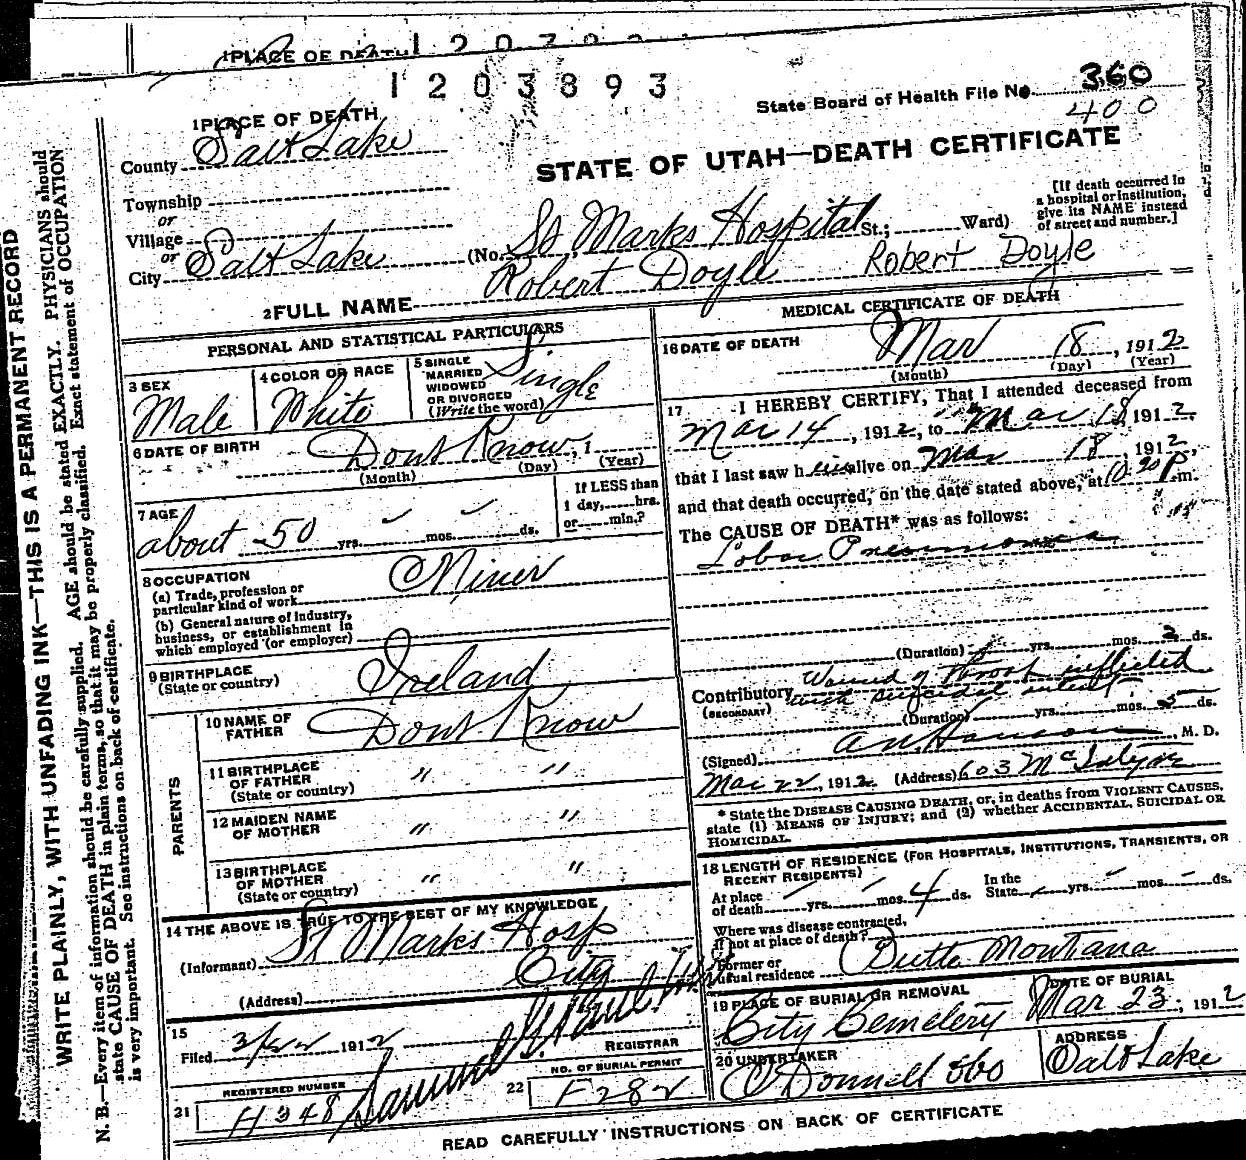 1 PLACE OF DEATH
1203893
State Board of Health File No. 360
400
1 PLACE OF DEATH
County Salt Lake
STATE OF UTAH—DEATH CERTIFICATE
Township
or
Village
or
City Salt Lake (No. St Marks Hospital St.; Ward)
[If death occurred in a hospital or institution, give its NAME instead of street and number.]
2 FULL NAME Robert Doyle Robert Doyle
PERSONAL AND STATISTICAL PARTICULARS
3 SEX Male
4 COLOR OR RACE White
5 SINGLE MARRIED WIDOWED OR DIVORCED (Write the word) Single
6 DATE OF BIRTH Dont Know, 1
(Month) (Day) (Year)
7 AGE about 50 yrs. mos. ds.
If LESS than 1 day, hrs. or min.?
8 OCCUPATION
(a) Trade, profession or particular kind of work Miner
(b) General nature of industry, business, or establishment in which employed (or employer)
9 BIRTHPLACE (State or country) Ireland
PARENTS
10 NAME OF FATHER Dont Know
11 BIRTHPLACE OF FATHER (State or country) " "
12 MAIDEN NAME OF MOTHER " "
13 BIRTHPLACE OF MOTHER (State or country) " "
14 THE ABOVE IS TRUE TO THE BEST OF MY KNOWLEDGE
(Informant) St Marks Hosp
(Address) City
15
Filed 3/22 1912 Samuel G. Paul
REGISTRAR
21 REGISTERED NUMBER H348
22 NO. OF BURIAL PERMIT F282
MEDICAL CERTIFICATE OF DEATH
16 DATE OF DEATH Mar 18, 1912
(Month) (Day) (Year)
17 I HEREBY CERTIFY, That I attended deceased from
Mar 14, 1912, to Mar 18, 1912,
that I last saw him alive on Mar 18, 1912,
and that death occurred, on the date stated above, at 10.20 P m.
The CAUSE OF DEATH* was as follows:
Lobar Pneumonia
(Duration) yrs. mos. 3 ds.
Contributory Wound of throat inflicted
(SECONDARY) with suicidal intent
(Duration) yrs. mos. 5 ds.
(Signed) A N Hanson, M. D.
Mar 22, 1912 (Address) 603 McIntyre
* State the DISEASE CAUSING DEATH, or, in deaths from VIOLENT CAUSES,
state (1) MEANS OF INJURY; and (2) whether ACCIDENTAL, SUICIDAL OR
HOMICIDAL.
18 LENGTH OF RESIDENCE (FOR HOSPITALS, INSTITUTIONS, TRANSIENTS, OR
RECENT RESIDENTS)
At place of death yrs. mos. 4 ds. In the State yrs. mos. ds.
Where was disease contracted, if not at place of death?
Former or usual residence Butte Montana
19 PLACE OF BURIAL OR REMOVAL City Cemetery
DATE OF BURIAL Mar 23, 1912
20 UNDERTAKER O'Donnell & Co
ADDRESS Salt Lake
READ CAREFULLY INSTRUCTIONS ON BACK OF CERTIFICATE
WRITE PLAINLY, WITH UNFADING INK—THIS IS A PERMANENT RECORD
N. B.—Every item of information should be carefully supplied. AGE should be stated EXACTLY. PHYSICIANS should
state CAUSE OF DEATH in plain terms, so that it may be properly classified. Exact statement of OCCUPATION
is very important. See instructions on back of certificate.